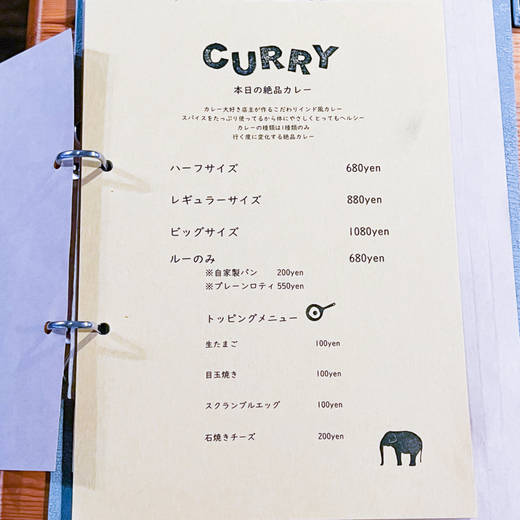 CURRY
本日の絶品カレー
カレー大好き店主が作るこだわりインド風カレー
スパイスをたっぷり使ってるから体にやさしくとってもヘルシー
カレーの種類は1種類のみ
行く度に変化する絶品カレー
ハーフサイズ 680yen
レギュラーサイズ 880yen
ビッグサイズ 1080yen
ルーのみ 680yen
※自家製パン 200yen
※プレーンロティ 550yen
トッピングメニュー
生たまご 100yen
目玉焼き 100yen
スクランブルエッグ 100yen
石焼きチーズ 200yen